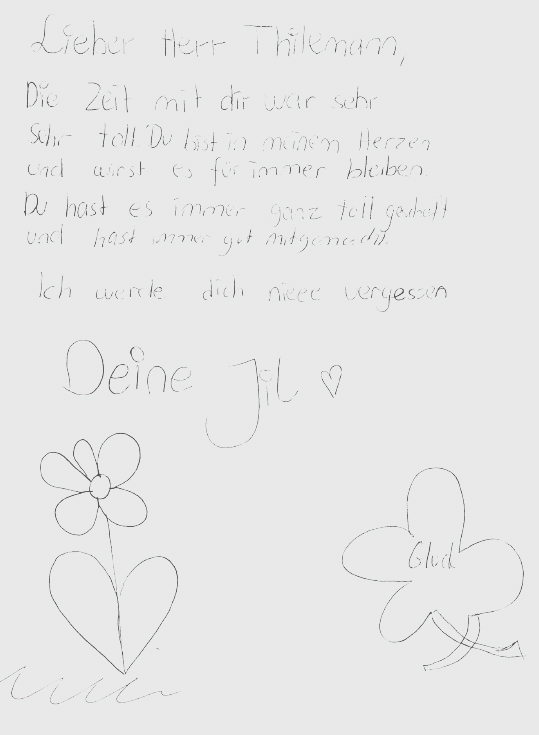 Lieber Herr Thilemann,
Die Zeit mit dir war sehr
sehr toll Du bist in meinem Herzen
und wirst es für immer bleiben.
Du hast es immer ganz toll geschafft
und hast immer gut mitgemacht.
Ich werde dich niee vergessen
Deine Jil ♡
Glück